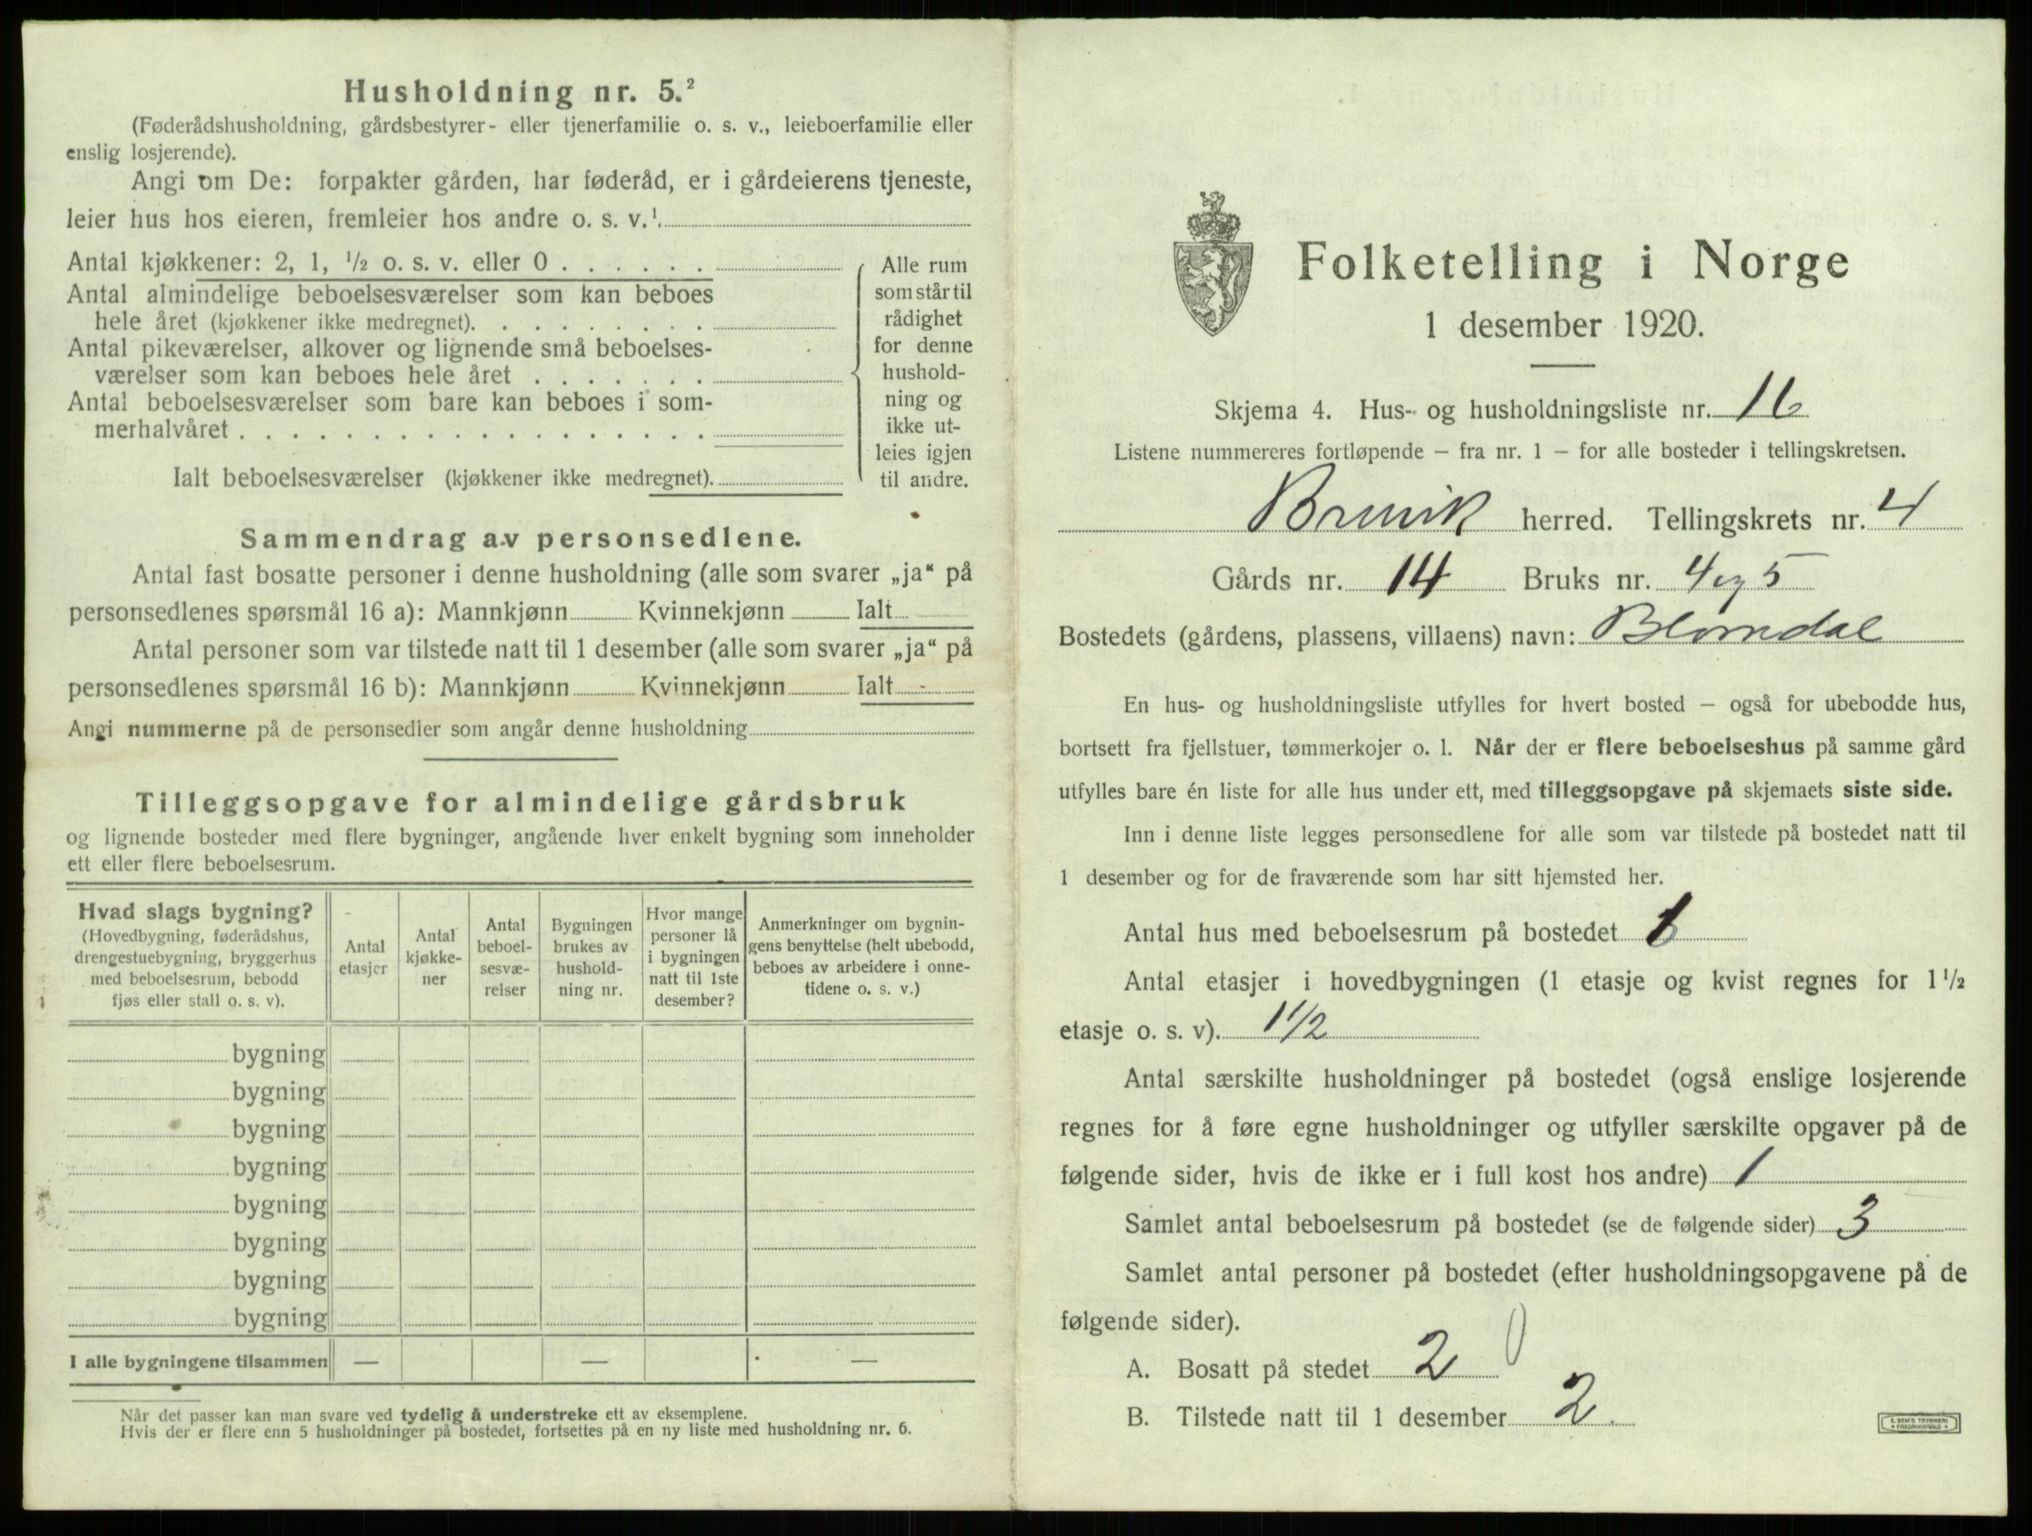 Husholdning nr. 5.²
(Føderådshusholdning, gårdsbestyrer- eller tjenerfamilie o. s. v., leieboerfamilie eller
enslig losjerende).
Angi om De: forpakter gården, har føderåd, er i gårdeierens tjeneste,
leier hus hos eieren, fremleier hos andre o. s. v.¹
Antal kjøkkener: 2, 1, ½ o. s. v. eller 0
Antal almindelige beboelsesværelser som kan beboes
hele året (kjøkkener ikke medregnet).
Antal pikeværelser, alkover og lignende små beboelses-
værelser som kan beboes hele året
Antal beboelsesværelser som bare kan beboes i som-
merhalvåret
Ialt beboelsesværelser (kjøkkener ikke medregnet).
Alle rum
som står til
rådighet
for denne
hushold-
ning og
ikke ut-
leies igjen
til andre.
Sammendrag av personsedlene.
Antal fast bosatte personer i denne husholdning (alle som svarer „ja“ på
personsedlenes spørsmål 16 a): Mannkjønn Kvinnekjønn Ialt
Antal personer som var tilstede natt til 1 desember (alle som svarer „ja“ på
personsedlenes spørsmål 16 b): Mannkjønn Kvinnekjønn Ialt
Angi nummerne på de personsedler som angår denne husholdning
Tilleggsopgave for almindelige gårdsbruk
og lignende bosteder med flere bygninger, angående hver enkelt bygning som inneholder
ett eller flere beboelsesrum.
Hvad slags bygning?
(Hovedbygning, føderådshus,
drengestuebygning, bryggerhus
med beboelsesrum, bebodd
fjøs eller stall o. s. v).
Antal
etasjer
Antal
kjøkke-
ner
Antal
beboel-
sesvæ-
relser
Bygningen
brukes av
hushold-
ning nr.
Hvor mange
personer lå
i bygningen
natt til 1ste
desember?
Anmerkninger om bygnin-
gens benyttelse (helt ubebodd,
beboes av arbeidere i onne-
tidene o. s. v.)
bygning
bygning
bygning
bygning
bygning
bygning
bygning
bygning
I alle bygningene tilsammen — — —
Når det passer kan man svare ved tydelig å understreke ett av eksemplene.
Hvis der er flere enn 5 husholdninger på bostedet, fortsettes på en ny liste med husholdning nr. 6.
Folketelling i Norge
1 desember 1920.
Skjema 4. Hus- og husholdningsliste nr. 16
Listene nummereres fortløpende – fra nr. 1 – for alle bosteder i tellingskretsen.
Bruvik herred. Tellingskrets nr. 4
Gårds nr. 14 Bruks nr. 4 og 5
Bostedets (gårdens, plassens, villaens) navn: Blomdal
En hus- og husholdningsliste utfylles for hvert bosted – også for ubebodde hus,
bortsett fra fjellstuer, tømmerkojer o. l. Når der er flere beboelseshus på samme gård
utfylles bare én liste for alle hus under ett, med tilleggsopgave på skjemaets siste side.
Inn i denne liste legges personsedlene for alle som var tilstede på bostedet natt til
1 desember og for de fraværende som har sitt hjemsted her.
Antal hus med beboelsesrum på bostedet 1
Antal etasjer i hovedbygningen (1 etasje og kvist regnes for 1 ½
etasje o. s. v). 1 1/2
Antal særskilte husholdninger på bostedet (også enslige losjerende
regnes for å føre egne husholdninger og utfyller særskilte opgaver på de
følgende sider, hvis de ikke er i full kost hos andre) 1
Samlet antal beboelsesrum på bostedet (se de følgende sider) 3
Samlet antal personer på bostedet (efter husholdningsopgavene på de
følgende sider).
A. Bosatt på stedet 2 0
B. Tilstede natt til 1 desember 2.
E. SEM'S TRYKKERI
FREDRIKSHALD